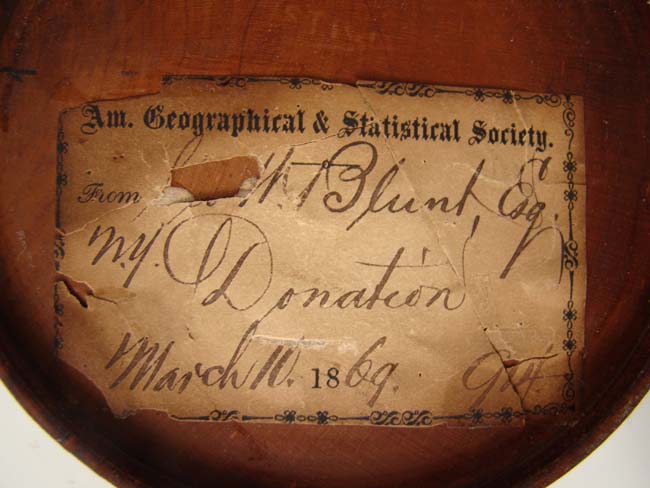 Am. Geographical & Statistical Society.
From W. Blunt, Esq.
N.Y. Donation
March 10. 1869.